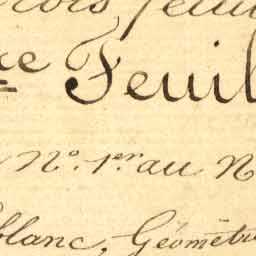 trois feuil
xe Feuil
No. 1er au N
blanc, Géomètr